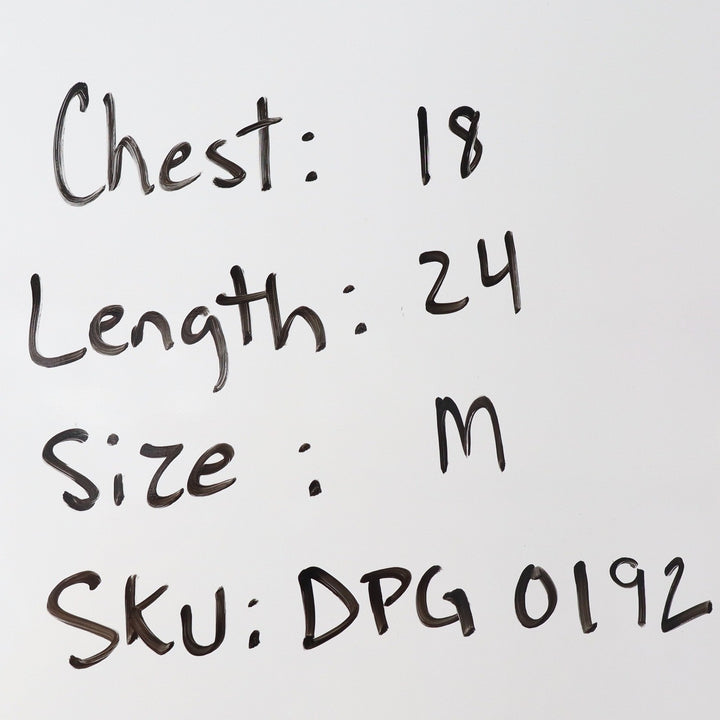 Chest: 18
Length: 24
Size : M
SKU: DPG 0192